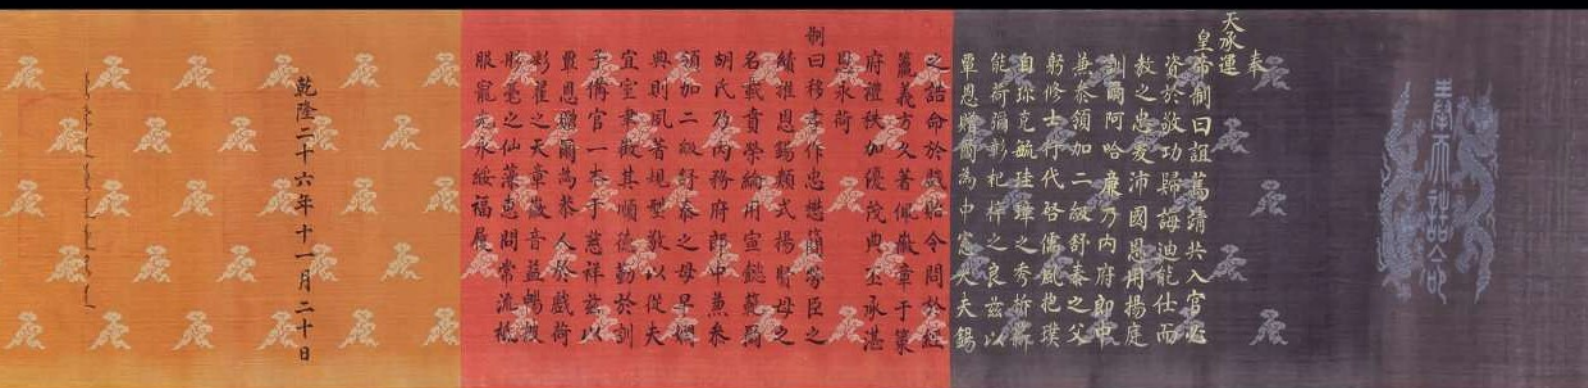 奉天誥命
奉
天承運
皇帝制曰誼篤靖共入官必
資於敬功歸誨迪能仕而
教之忠爰沛國恩用揚庭
訓爾阿哈廉乃内府郎中
兼叅領加二級舒泰之父
躬修士行代啓儒風抱璞
自珎克毓珪璋之秀析薪
能荷彌彰杞梓之良兹以
覃恩贈爾為中憲大夫錫
之誥命於戲貽令問於經
籯義方久著佩徽章于策
府禮秩加優茂典丕承湛
恩永荷
制曰移孝作忠懋簡勞臣之
績推恩錫類式揚賢母之
名載賁榮綸用宣懿範爾
胡氏乃内務府郎中兼叅
領加二級舒泰之母早嫻
典則夙著規型敬以從夫
宜室聿徵其順德勤於訓
子備官一本于慈祥兹以
覃恩贈爾為恭人於戲荷
彩翟之天章徽音益暢被
彤毫之仙藻惠問常流祗
服寵光永綏福履
乾隆二十六年十一月二十日